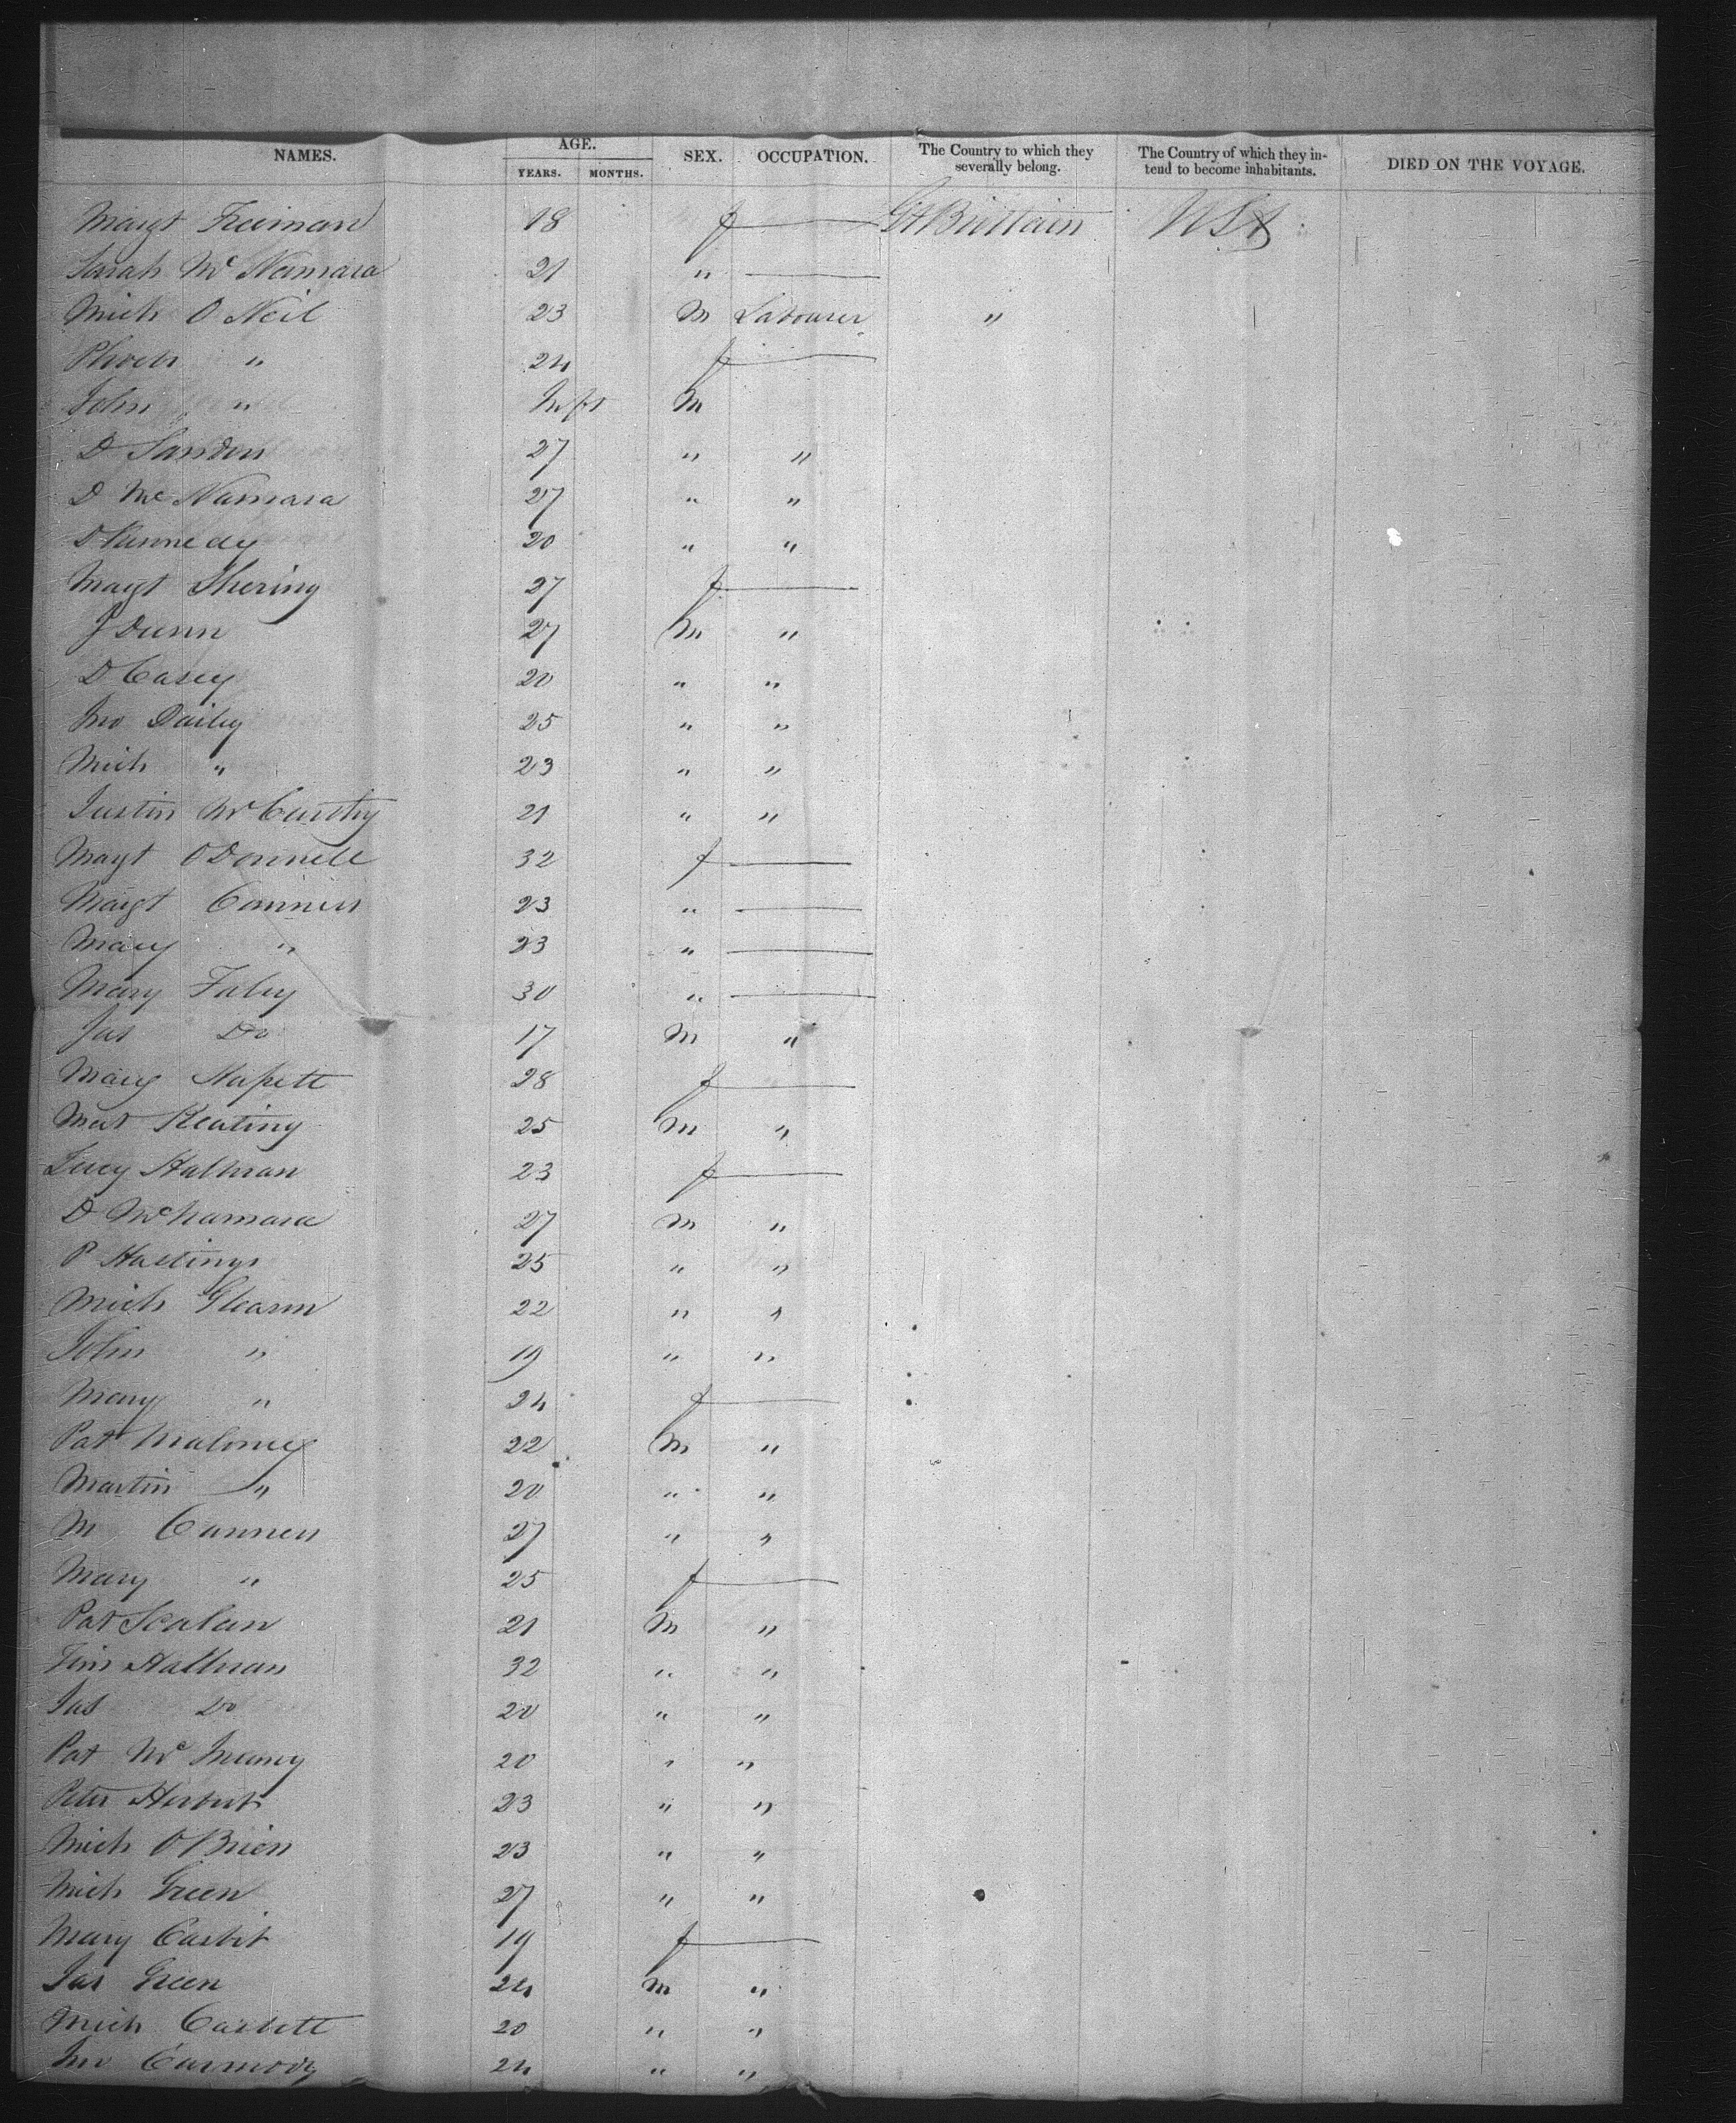 NAMES. AGE. YEARS. MONTHS. SEX. OCCUPATION. The Country to which they severally belong. The Country of which they intend to become inhabitants. DIED ON THE VOYAGE.
Margt Freeman 18 f — Gt Brittain USA
Sarah Mc Namara 21 " —
Mich O Neil 23 M Labourer "
" 24 f —
John " Inft M
D 27 " "
D Mc Namara 27 " "
D Kennedy 20 " "
Margt 27 f —
J Dunn 27 M "
D Casey 20 " "
Jno Dailey 25 " "
Mich " 23 " "
Justin Mc Carthy 21 " "
Margt O Donnell 32 f —
Margt Conners 23 " —
Mary " 23 " —
Mary Fahy 30 " —
Jas Do 17 M "
Mary 28 f —
Mat Keating 25 M "
Lucy 23 f —
D McNamara 27 M "
P Hastings 25 " "
Mich 22 " "
John " 19 " "
Mary " 24 f —
Pat Maloney 22 M "
Martin " 20 " "
M Conners 27 " "
Mary " 25 f —
Pat Scalan 21 M "
Tim 32 " "
Jas Do 20 " "
Pat Mc 20 " "
Peter Herbert 23 " "
Mich O Brien 23 " "
Mich Green 27 " "
Mary 19 f —
Jas Green 24 M "
Mich 20 " "
Jno Carmody 24 " "